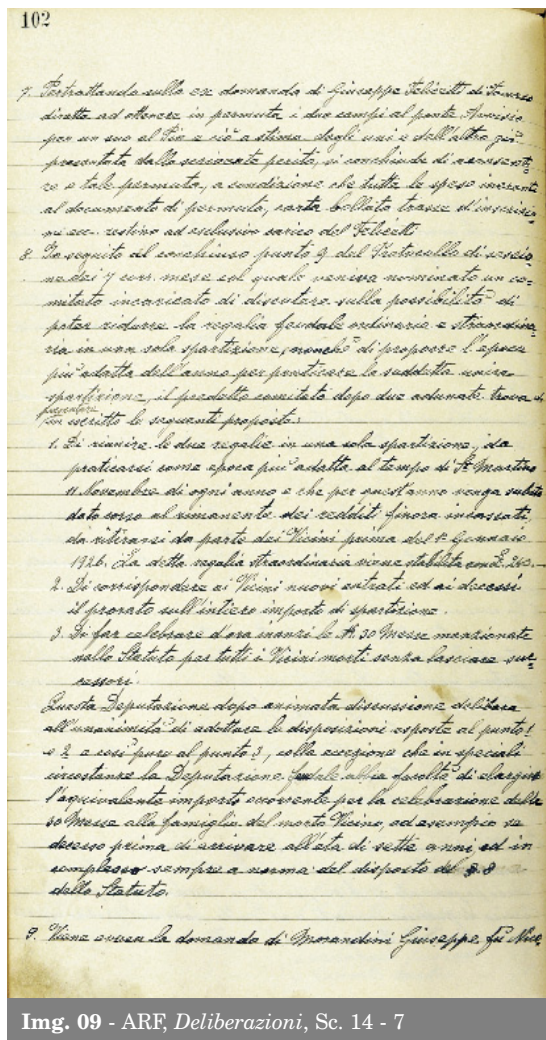 102
7. Pertrattando sulla ex domanda di Giuseppe Felicetti di Tomaso
diretta ad ottenere in permuta i due campi al ponte,
per un suo al Pin e ciò a stima degli uni e dell'altro già
presentata dalla serocente perito, si conchiude di acconsenti=
re a tale permuta, a condizione che tutte le spese inerenti
al documento di permuta, carta bollata tasse d'inscrizio=
ni ecc. restino ad esclusivo carico del Felicetti
8. In seguito al conchiuso punto 9 del Protocollo di sessio=
ne dei 7 corr. mese col quale veniva nominato un co=
mitato incaricato di discutere sulla possibilità di
poter ridurre la regalia feudale ordinaria e straordina=
ria in una sola spartizione, nonchè di proporre l'epoca
più adatta dell'anno per praticare la suddetta unica
spartizione, il predetto comitato dopo due adunate trova di
presentare
in iscritto le seguenti proposte:
1. Di riunire le due regalie in una sola spartizione, da
praticarsi come epoca più adatta al tempo di St. Martino
11 Novembre di ogni anno e che per quest'anno venga subito
dato corso al rimanente dei redditi finora incassati,
da ritirarsi da parte dei Vicini prima del 1° Gennaio
1926. La detta regalia straordinaria viene stabilita con £. 263.-
2. Di corrispondere ai Vicini nuovi entrati ed ai decessi
il prorato sull'intiero importo di spartizione.
3. Di far celebrare d'ora inanzi le N. 30 Messe menzionate
nello Statuto per tutti i Vicini morti senza lasciare suc=
cessori.
Questa Deputazione dopo animata discussione delibera
all'unanimità di adottare le disposizioni esposte al punto 1
e 2 e così pure al punto 3, colla eccezione che in speciali
circostanze la Deputazione feudale abbia facoltà di elargire
l'equivalente importo occorrente per la celebrazione delle
30 Messe alla famiglia del morto Vicino, ad esempio se
decesso prima di arrivare all'età di sette anni, ed in
complesso sempre a norma del disposto del § 8
dello Statuto.
9. Viene evasa la domanda di Morandini Giuseppe fu
Img. 09 - ARF, Deliberazioni, Sc. 14 - 7